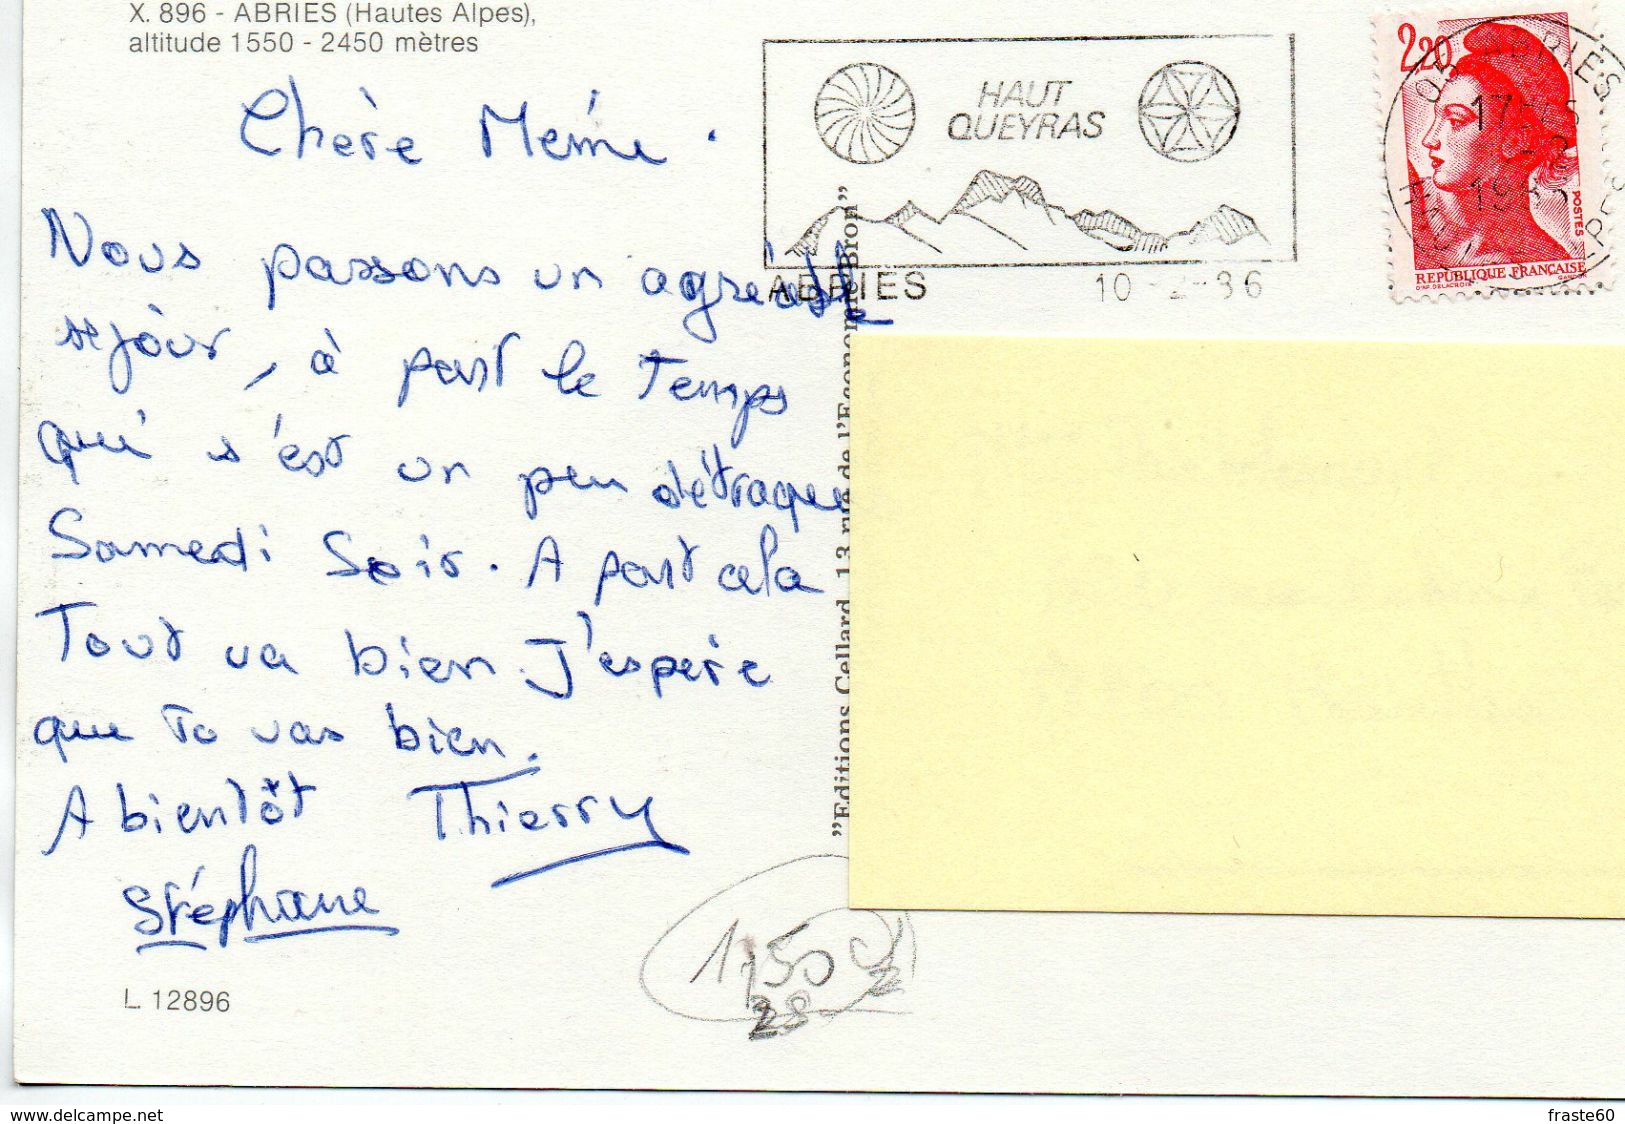 X. 896 - ABRIES (Hautes Alpes),
altitude 1550 - 2450 mètres
Chère Mémé.
Nous passons un agréable
séjour, à part le Temps
qui s'est un peu détraqué
Samedi Soir. A part cela
Tout va bien J'espère
que Tu vas bien.
A bientôt Thierry
Stéphane
L 12896
"Editions Cellard, 13 rue de l'Economie Bron"
HAUT
QUEYRAS
ABRIES 10-2-86
2,20
POSTES
REPUBLIQUE FRANÇAISE
1,50
28
www.delcampe.net
fraste60